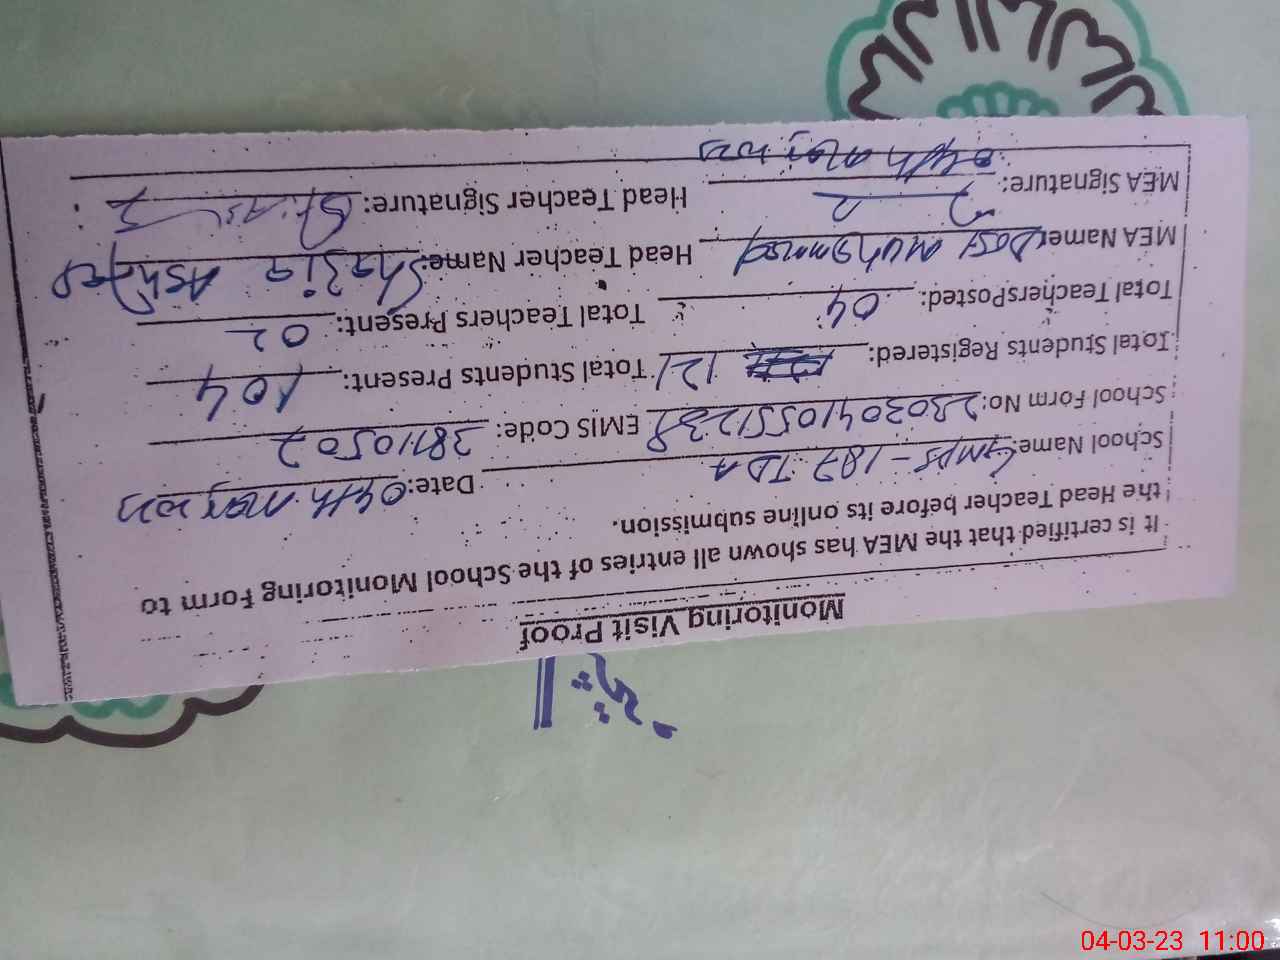 Monitoring Visit Proof
It is certified that the MEA has shown all entries of the School Monitoring Form to
the Head Teacher before its online submission.
School Name: GMPS-187 TDA Date: 04th Mar 2023
School Form No: EMIS Code: 38110502
Total Students Registered: 121 Total Students Present: 104
Total TeachersPosted: 04 Total Teachers Present: 02
MEA Name: Dost Muhammad Head Teacher Name: Shazia Ashraf
MEA Signature: Head Teacher Signature:
04th Mar 2023
04-03-23 11:00